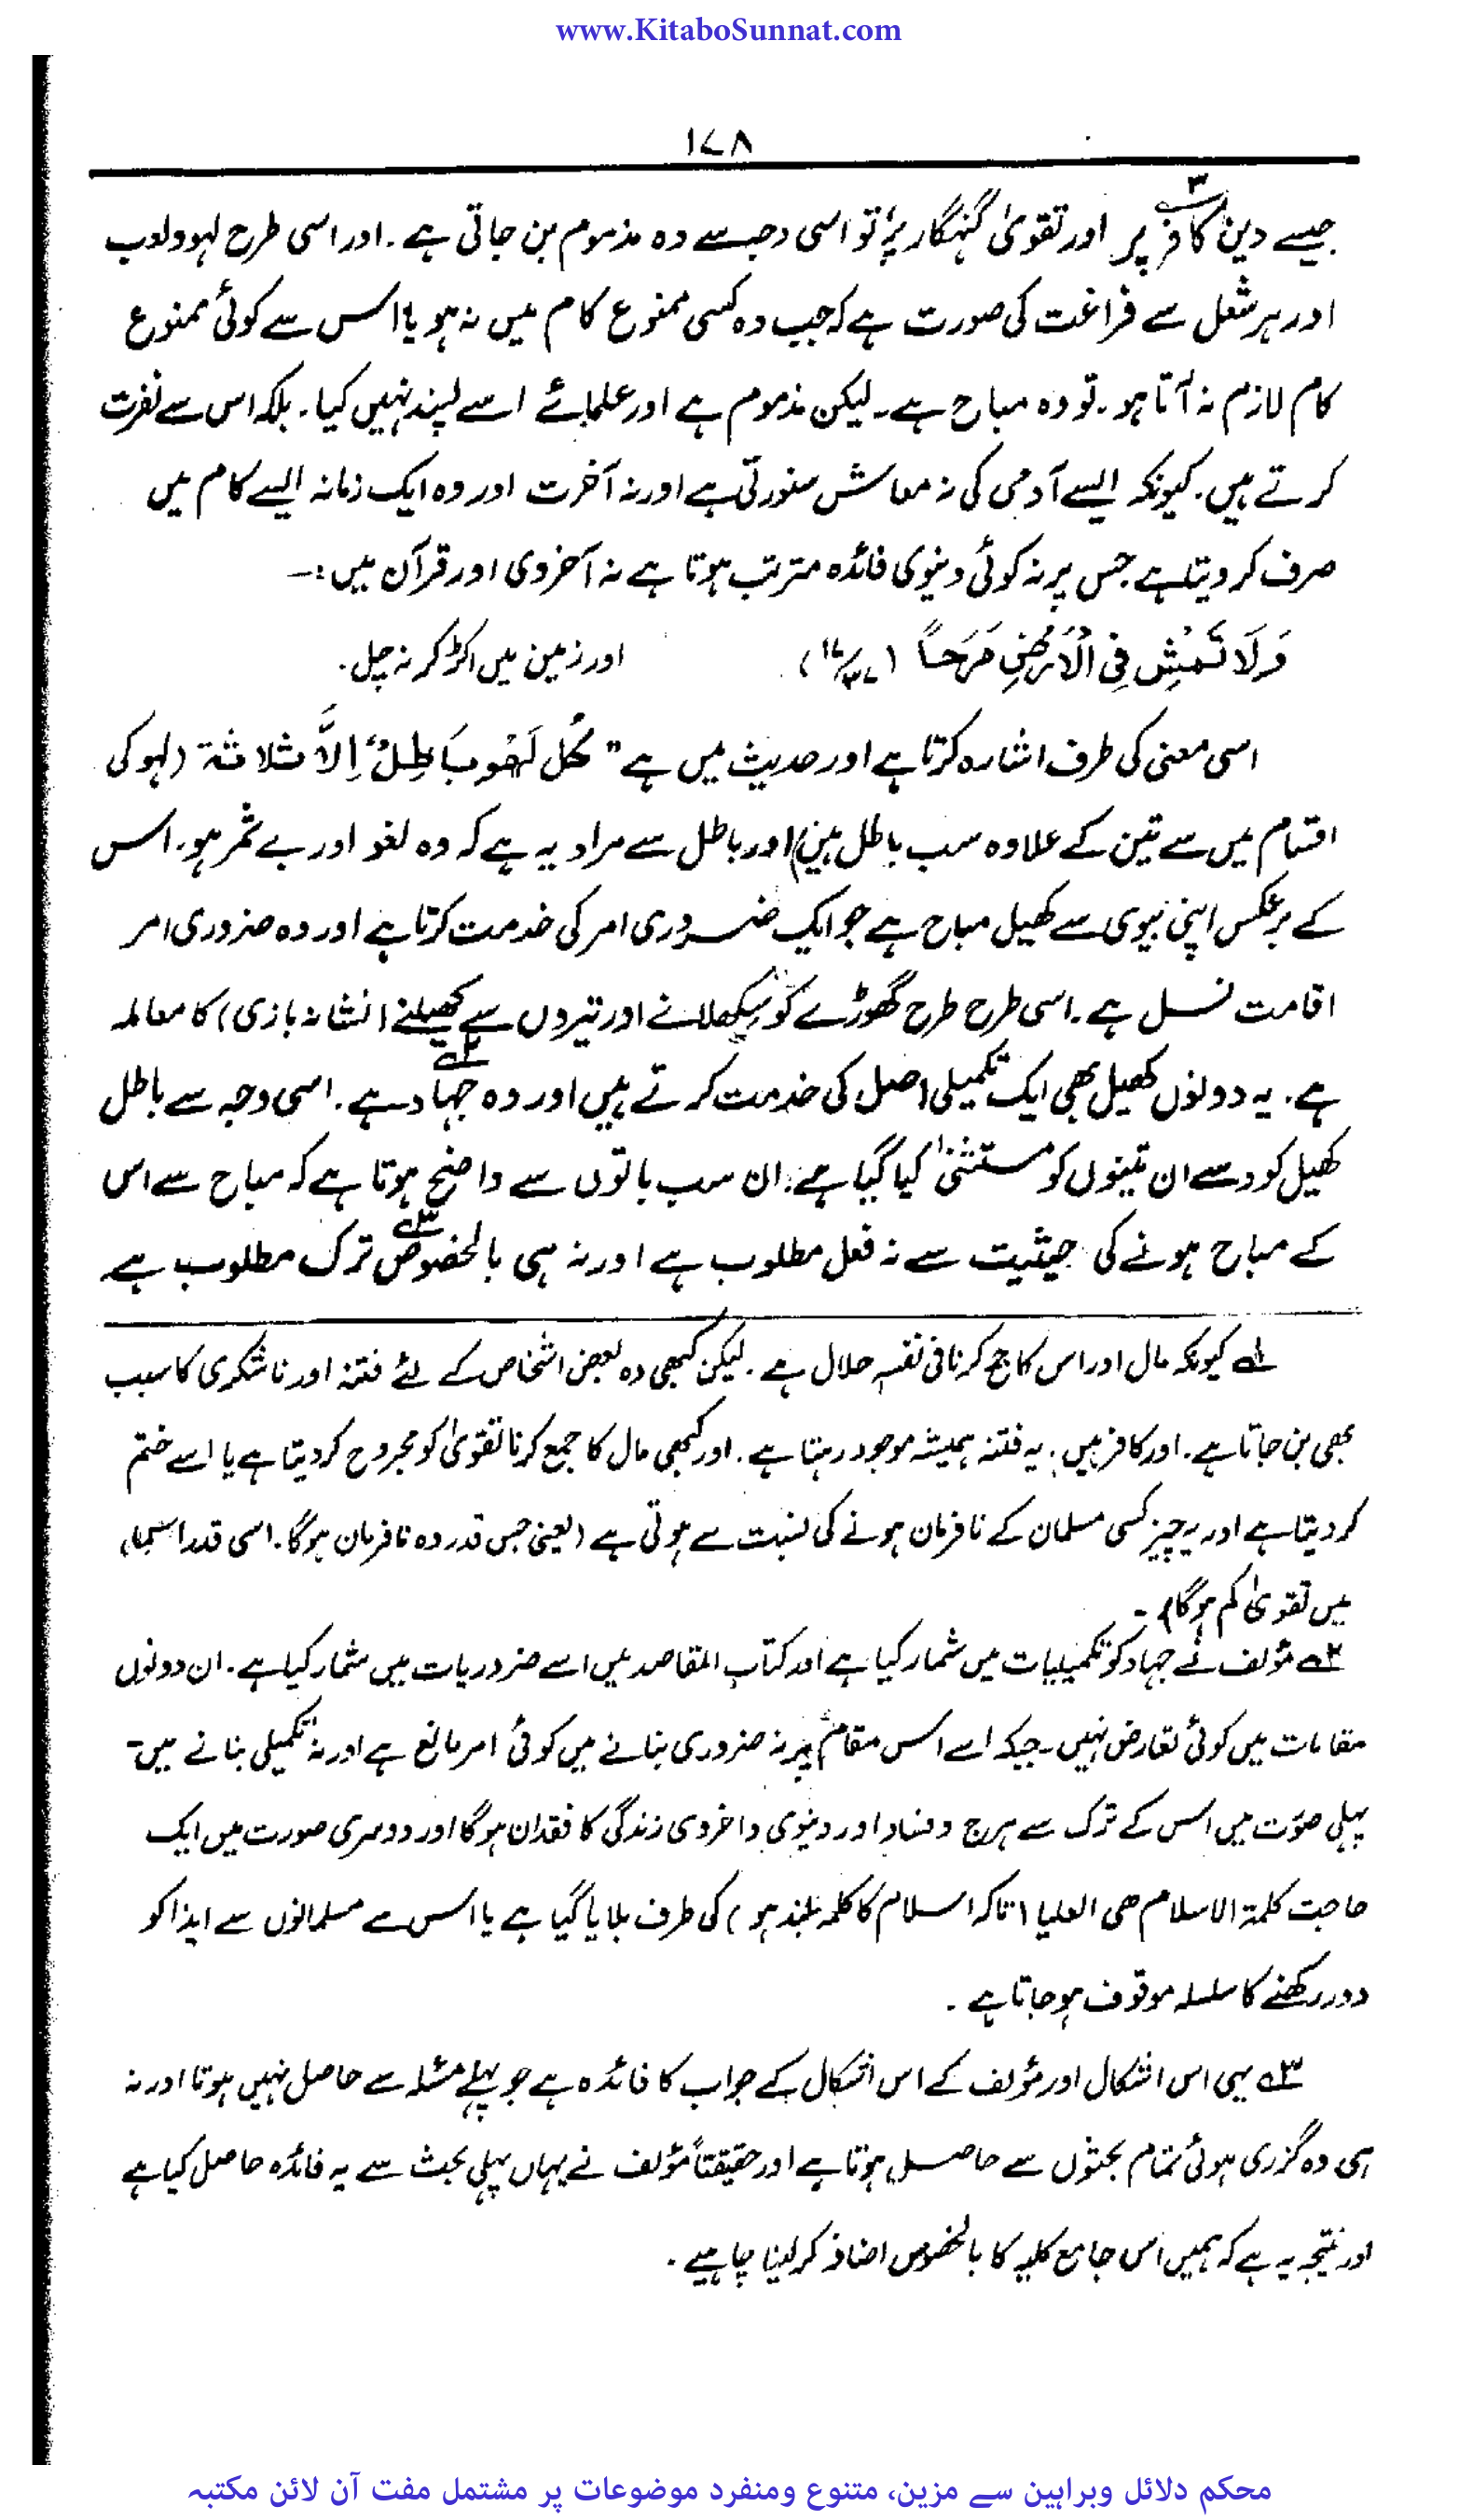 www.KitaboSunnat.com
۱۷۸
جیسے دین کافر پر اور تقویٰ گنہگار پر تو اسی وجہ سے وہ مذموم بن جاتی ہے ۔ اور اسی طرح لہو و لعب
اور ہر شغل سے فراغت کی صورت ہے کہ جب وہ کسی ممنوع کام میں نہ ہو یا اس سے کوئی ممنوع
کام لازم نہ آتا ہو ۔ تو وہ مباح ہے ۔ لیکن مذموم ہے اور علماء نے اسے پسند نہیں کیا ۔ بلکہ اس سے نفرت
کرتے ہیں ۔ کیونکہ ایسے آدمی کی نہ معاش سنورتی ہے اور نہ آخرت اور وہ ایک زمانہ ایسے کام میں
صرف کر دیتا ہے جس پر نہ کوئی دنیوی فائدہ مترتب ہوتا ہے نہ آخروی اور قرآن میں :۔
وَلَا تَمْشِ فِی الْاَرْضِ مَرَحاً (۱۷/۳۷) اور زمین میں اکڑ کر نہ چل ۔
اسی معنی کی طرف اشارہ کرتا ہے اور حدیث میں ہے " کُل لَہْوٍ بَاطِلٌ اِلاَّ ثلاثۃ (لہو کی
اقسام میں سے تین کے علاوہ سب باطل ہیں) اور باطل سے مراد یہ ہے کہ وہ لغو اور بے ثمر ہو ۔ اس
کے برعکس اپنی بیوی سے کھیل مباح ہے جو ایک ضروری امر کی خدمت کرتا ہے اور وہ ضروری امر
اقامت نسل ہے ۔ اسی طرح طرح گھوڑے کو سکھلانے اور تیروں سے کھیلنے (نشانہ بازی) کا معاملہ
ہے ۔ یہ دونوں کھیل بھی ایک تکمیلی اصل کی خدمت کرتے ہیں اور وہ جہاد۲ ہے ۔ اسی وجہ سے باطل
کھیل کود سے ان تینوں کو مستثنیٰ کیا گیا ہے ۔ ان سب باتوں سے واضح ہوتا ہے کہ مباح سے اس
کے مباح ہونے کی حیثیت سے نہ فعل مطلوب ہے اور نہ ہی بالخصوص۳ ترک مطلوب ہے
۱ کیونکہ مال اور اس کا جمع کرنا فی نفسہٖ حلال ہے ۔ لیکن کبھی وہ بعض اشخاص کے لئے فتنہ اور ناشکری کا سبب
بھی بن جاتا ہے ۔ اور کافر میں یہ فتنہ ہمیشہ موجود رہتا ہے ۔ اور کبھی مال کا جمع کرنا تقویٰ کو مجروح کر دیتا ہے یا اسے ختم
کر دیتا ہے اور یہ چیز کسی مسلمان کے نافرمان ہونے کی نسبت سے ہوتی ہے (یعنی جس قدر وہ نافرمان ہو گا ۔ اسی قدر اس
میں تقویٰ کم ہو گا) ۔
۲ مؤلف نے جہاد کو تکمیلیات میں شمار کیا ہے اور کتاب المقاصد میں اسے ضروریات میں شمار کیا ہے ۔ ان دونوں
مقامات میں کوئی تعارض نہیں ۔ جبکہ اسے اس مقام پر نہ ضروری بنانے میں کوئی امر مانع ہے اور نہ تکمیلی بنانے میں ۔
پہلی صورت میں اس کے ترک سے ہرج و فساد اور دنیوی و اخروی زندگی کا فقدان ہو گا اور دوسری صورت میں ایک
حاجت کلمۃ الاسلام ھی العلیا (تاکہ اسلام کا کلمہ بلند ہو) کی طرف بلایا گیا ہے یا اس سے مسلمانوں سے ایذا کو
دور رکھنے کا سلسلہ موقوف ہو جاتا ہے ۔
۳ یہی اس اشکال اور مؤلف کے اس اشکال کے جواب کا فائدہ ہے جو پہلے مسئلہ سے حاصل نہیں ہوتا اور نہ
ہی وہ گزری ہوئی تمام بحثوں سے حاصل ہوتا ہے اور حقیقتاً مؤلف نے یہاں پہلی بحث سے یہ فائدہ حاصل کیا ہے
اور نتیجہ یہ ہے کہ ہمیں اس جامع کلیہ کا بالخصوص اضافہ کر لینا چاہیے ۔
محکم دلائل وبراہین سے مزین، متنوع ومنفرد موضوعات پر مشتمل مفت آن لائن مکتبہ